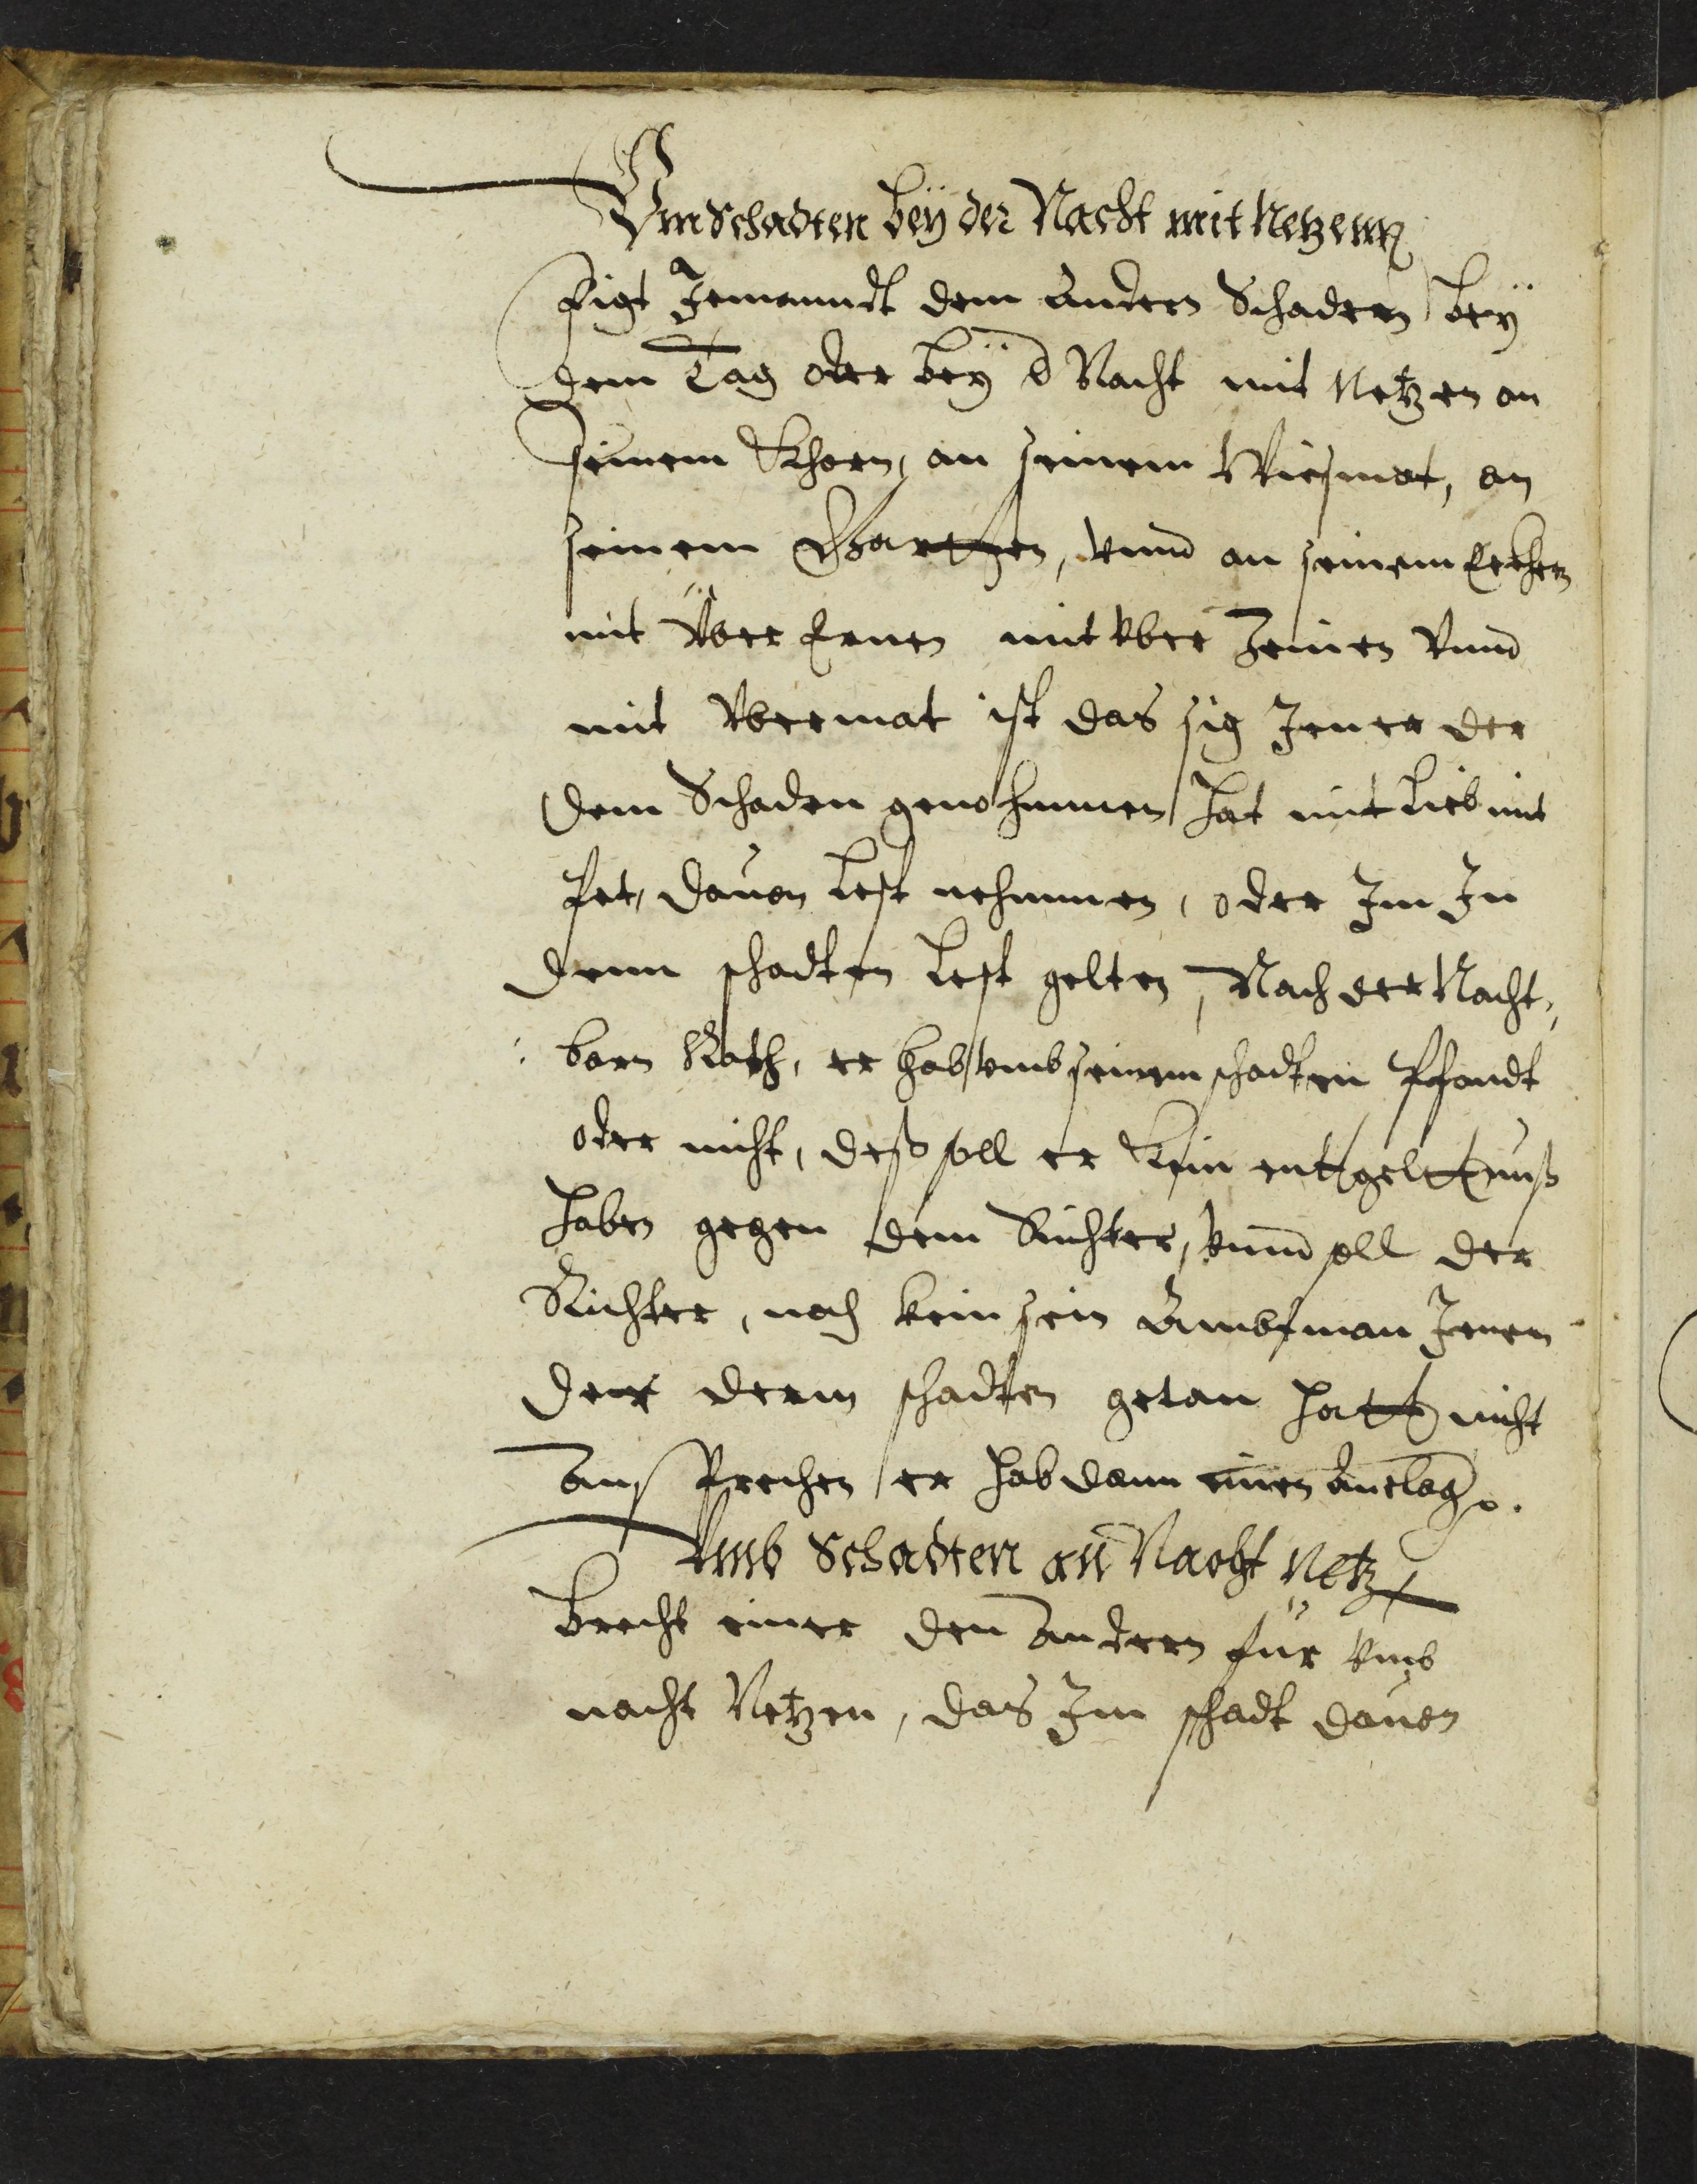 Vm Schadten beÿ der Nacht mit Netzenn
Figt Jemanndt dem Andern Schaden beÿ
dem Tag oder beÿ d Nacht mit Netzen an
seinem Khorn, an seinem Wießmat, an
seinem Gartten, vnnd an seinem Eckhern
mit Vber Ernen mit vber Zeinen Vnnd
mit Vbermat ist das sig Jener der
dem Schaden genohmmen hat mit Lieb mit
Pet, dauon Lest nehmmen, oder Im In
denn schadten Lest gelten, Nach der Nacht,,
: barn Rath, er hab vmb seinem schadten Pfandt
oder nicht, deß soll er Kein entgeltnuß
haben gegen dem Richter, vnnd soll der
Richter, noch kein sein Ambtman Jenen
der denn schadten getan hatt nicht
an Sprechen er hab dann einen Anclag.
Vmb Schadten an Nacht Netz
Brecht einer den Andern für vmb
nacht Netzen, das Im schadt dauon